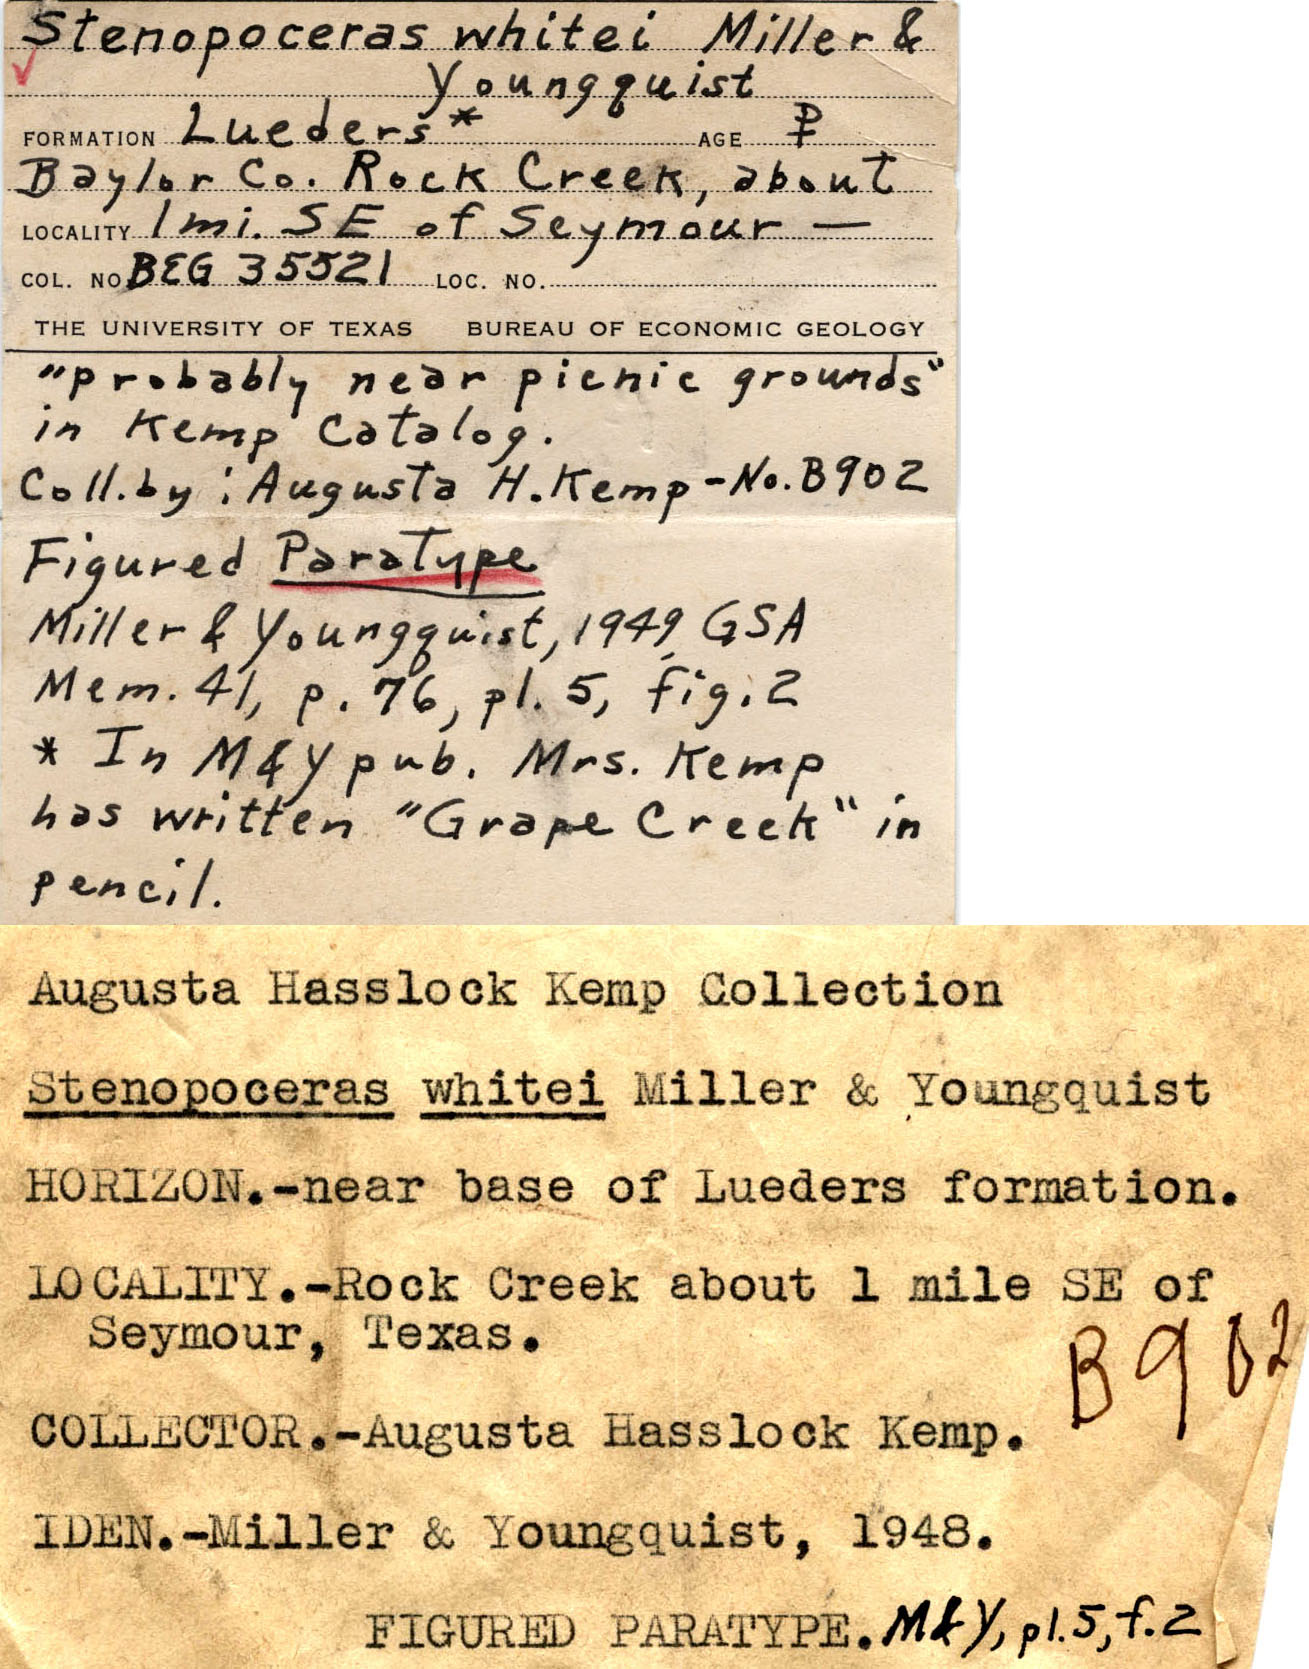 Stenopoceras whitei Miller &
Youngquist
FORMATION Lueders* AGE
Baylor Co. Rock Creek, about
LOCALITY 1 mi. SE of Seymour —
COL. NO. BEG 35521 LOC. NO.
THE UNIVERSITY OF TEXAS BUREAU OF ECONOMIC GEOLOGY
"probably near picnic grounds"
in Kemp Catalog.
Coll. by: Augusta H. Kemp - No. B902
Figured Paratype
Miller & Youngquist, 1949, GSA
Mem. 41, p. 76, pl. 5, fig. 2
* In M & Y pub. Mrs. Kemp
has written "Grape Creek" in
pencil.
Augusta Hasslock Kemp Collection
Stenopoceras whitei Miller & Youngquist
HORIZON.-near base of Lueders formation.
LOCALITY.-Rock Creek about 1 mile SE of
Seymour, Texas.
B902
COLLECTOR.-Augusta Hasslock Kemp.
IDEN.-Miller & Youngquist, 1948.
FIGURED PARATYPE. M & Y, pl. 5, f. 2